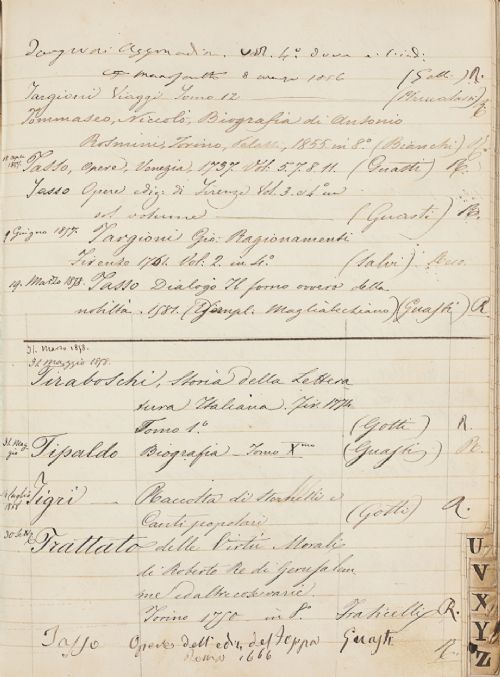 Targioni Viaggi Tomo 12
Tommaseo, Niccolò, Biografia di Antonio
Rosmini, Torino, 1855 in 8.° (Bianchi)
Tasso, Opere, Venezia, 1737. Vol. 5. 7. 8. 11. (Guasti) R.
Tasso Opere ediz. di Firenze Vol. 3. in
volume (Guasti) R.
9 Giugno 1857. Targioni Gio: Ragionamenti
Firenze Vol. 2. in 4.° (Salvi)
19. Marzo 1858. Tasso Dialogo Il forno ovvero della
nobiltà. 1581. Magliabechiano) (Guasti) R
31. Marzo 1858.
31. Maggio 1858.
Tiraboschi, Storia della Lettera
tura Italiana. Fir. 1774.
Tomo 1.° (Gotti) R.
Tipaldo Biografia – Tomo X.mo (Guasti) R.
Tigri Raccolta di stornelli e
Canti popolari (Gotti) R.
Trattato delle Virtù Morali
di Roberto Re di Gerusalem
me ed altre cose varie.
Torino 1750 in 8.° Fraticelli R.
Tasso Opere dell'ediz. del Foppa Guasti R.
Roma 1666
U
V
X
Y
Z